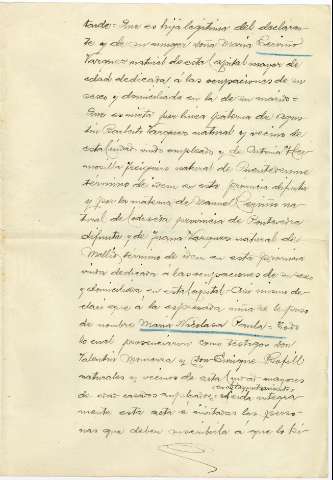 tarde = Que es hija legitima del declaran-
te y de su mujer doña Maria
Vazquez natural de esta Capital mayor de
edad dedicada á las ocupaciones de su
sexo y domiciliada en la de su marido =
Que es nieta por linea paterna de Agus-
tin Vazquez natural y vecino de
esta Ciudad viudo empleado y de Antonia
natural de
termino de idem en esta provincia difunta
y por la materna de Manuel na-
tural de provincia de Pontevedra
difunto y de Juana Vazquez natural de
termino de idem en esta provincia
viuda dedicada á las ocupaciones de su sexo
y domiciliada en esta Capital = Asi mismo de-
claró que á la espresada niña se le puso
de nombre Maria Nicolasa Paula = Todo
lo cual presenciaron como testigos Don
Valentin y Don Enrique
naturales y vecinos de esta Ciudad mayores
de edad casados empleados = Leida integra
mente esta acta é invitadas las perso-
nas que deben suscribirla á que lo hi-